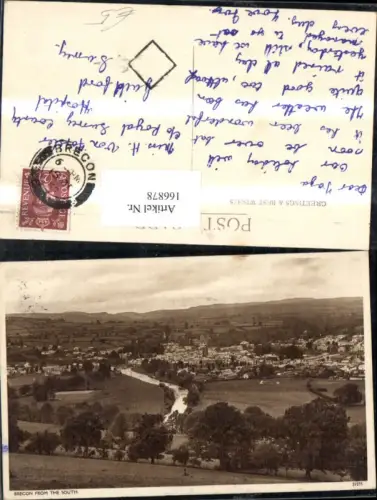 GREETINGS & BEST WISHES
POST CARD
Dear Joya
our holiday will
soon be over but
it has been wonderful
the weather has been
quite good too, although
it rained all day
yesterday, still we have
managed to go out
every day. Love from
Miss H. Von
c/o Royal Surrey County
Hospital
Guildford
Surrey.
BRECON
REVENUE
Artikel Nr.
166878
BRECON FROM THE SOUTH